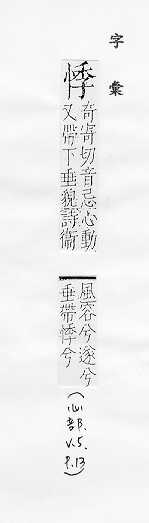 字彙
悸
奇寄切音忌心動
又帶下垂貌詩衞
風容兮遂兮
垂帶悸兮
(心部.
V.5.
P.13)